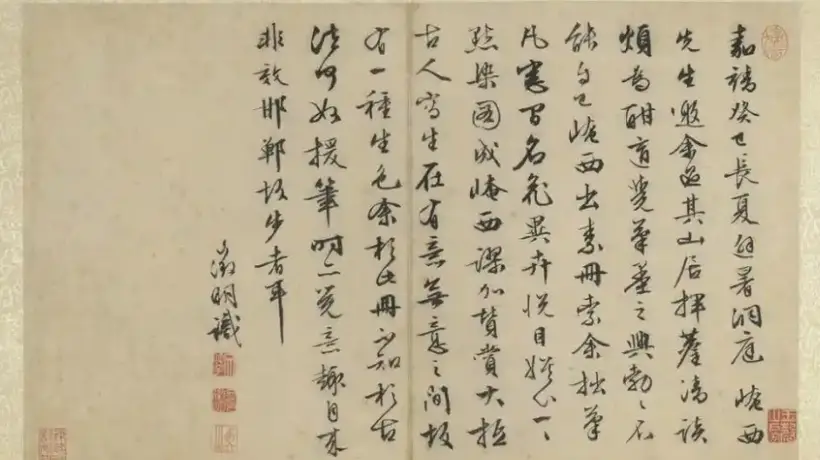 嘉靖癸巳長夏避暑洞庭崦西
先生邀余過其山居揮麈清談
頗為酣適覺筆墨之興勃〻不
能自已崦西出素冊索余拙筆
凡窗間名花異卉悅目娛心一〻
點染圖成崦西謬加贊賞大抵
古人寫生在有意無意之間故
有一種生色余於此冊不知於古
法何如援筆時亦覺意趣自來
非效邯鄲故步者耳
徵明識